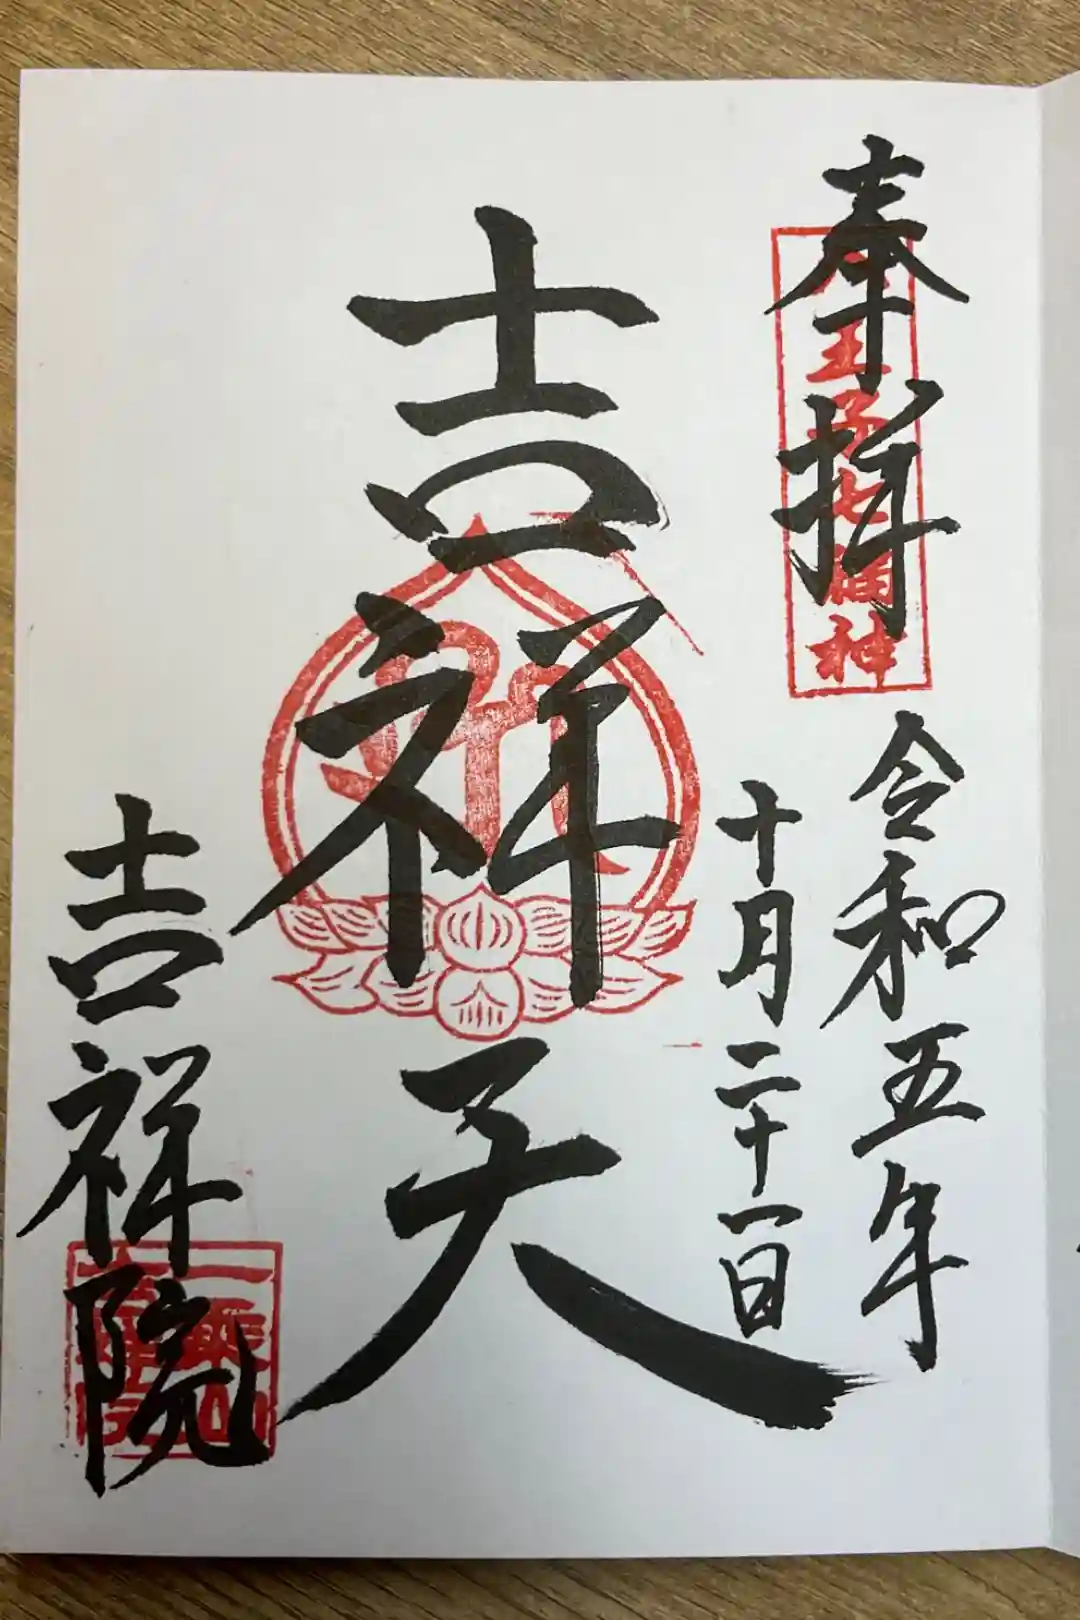 奉拝
王子七福神
令和五年
十月二十一日
吉祥天
吉祥院